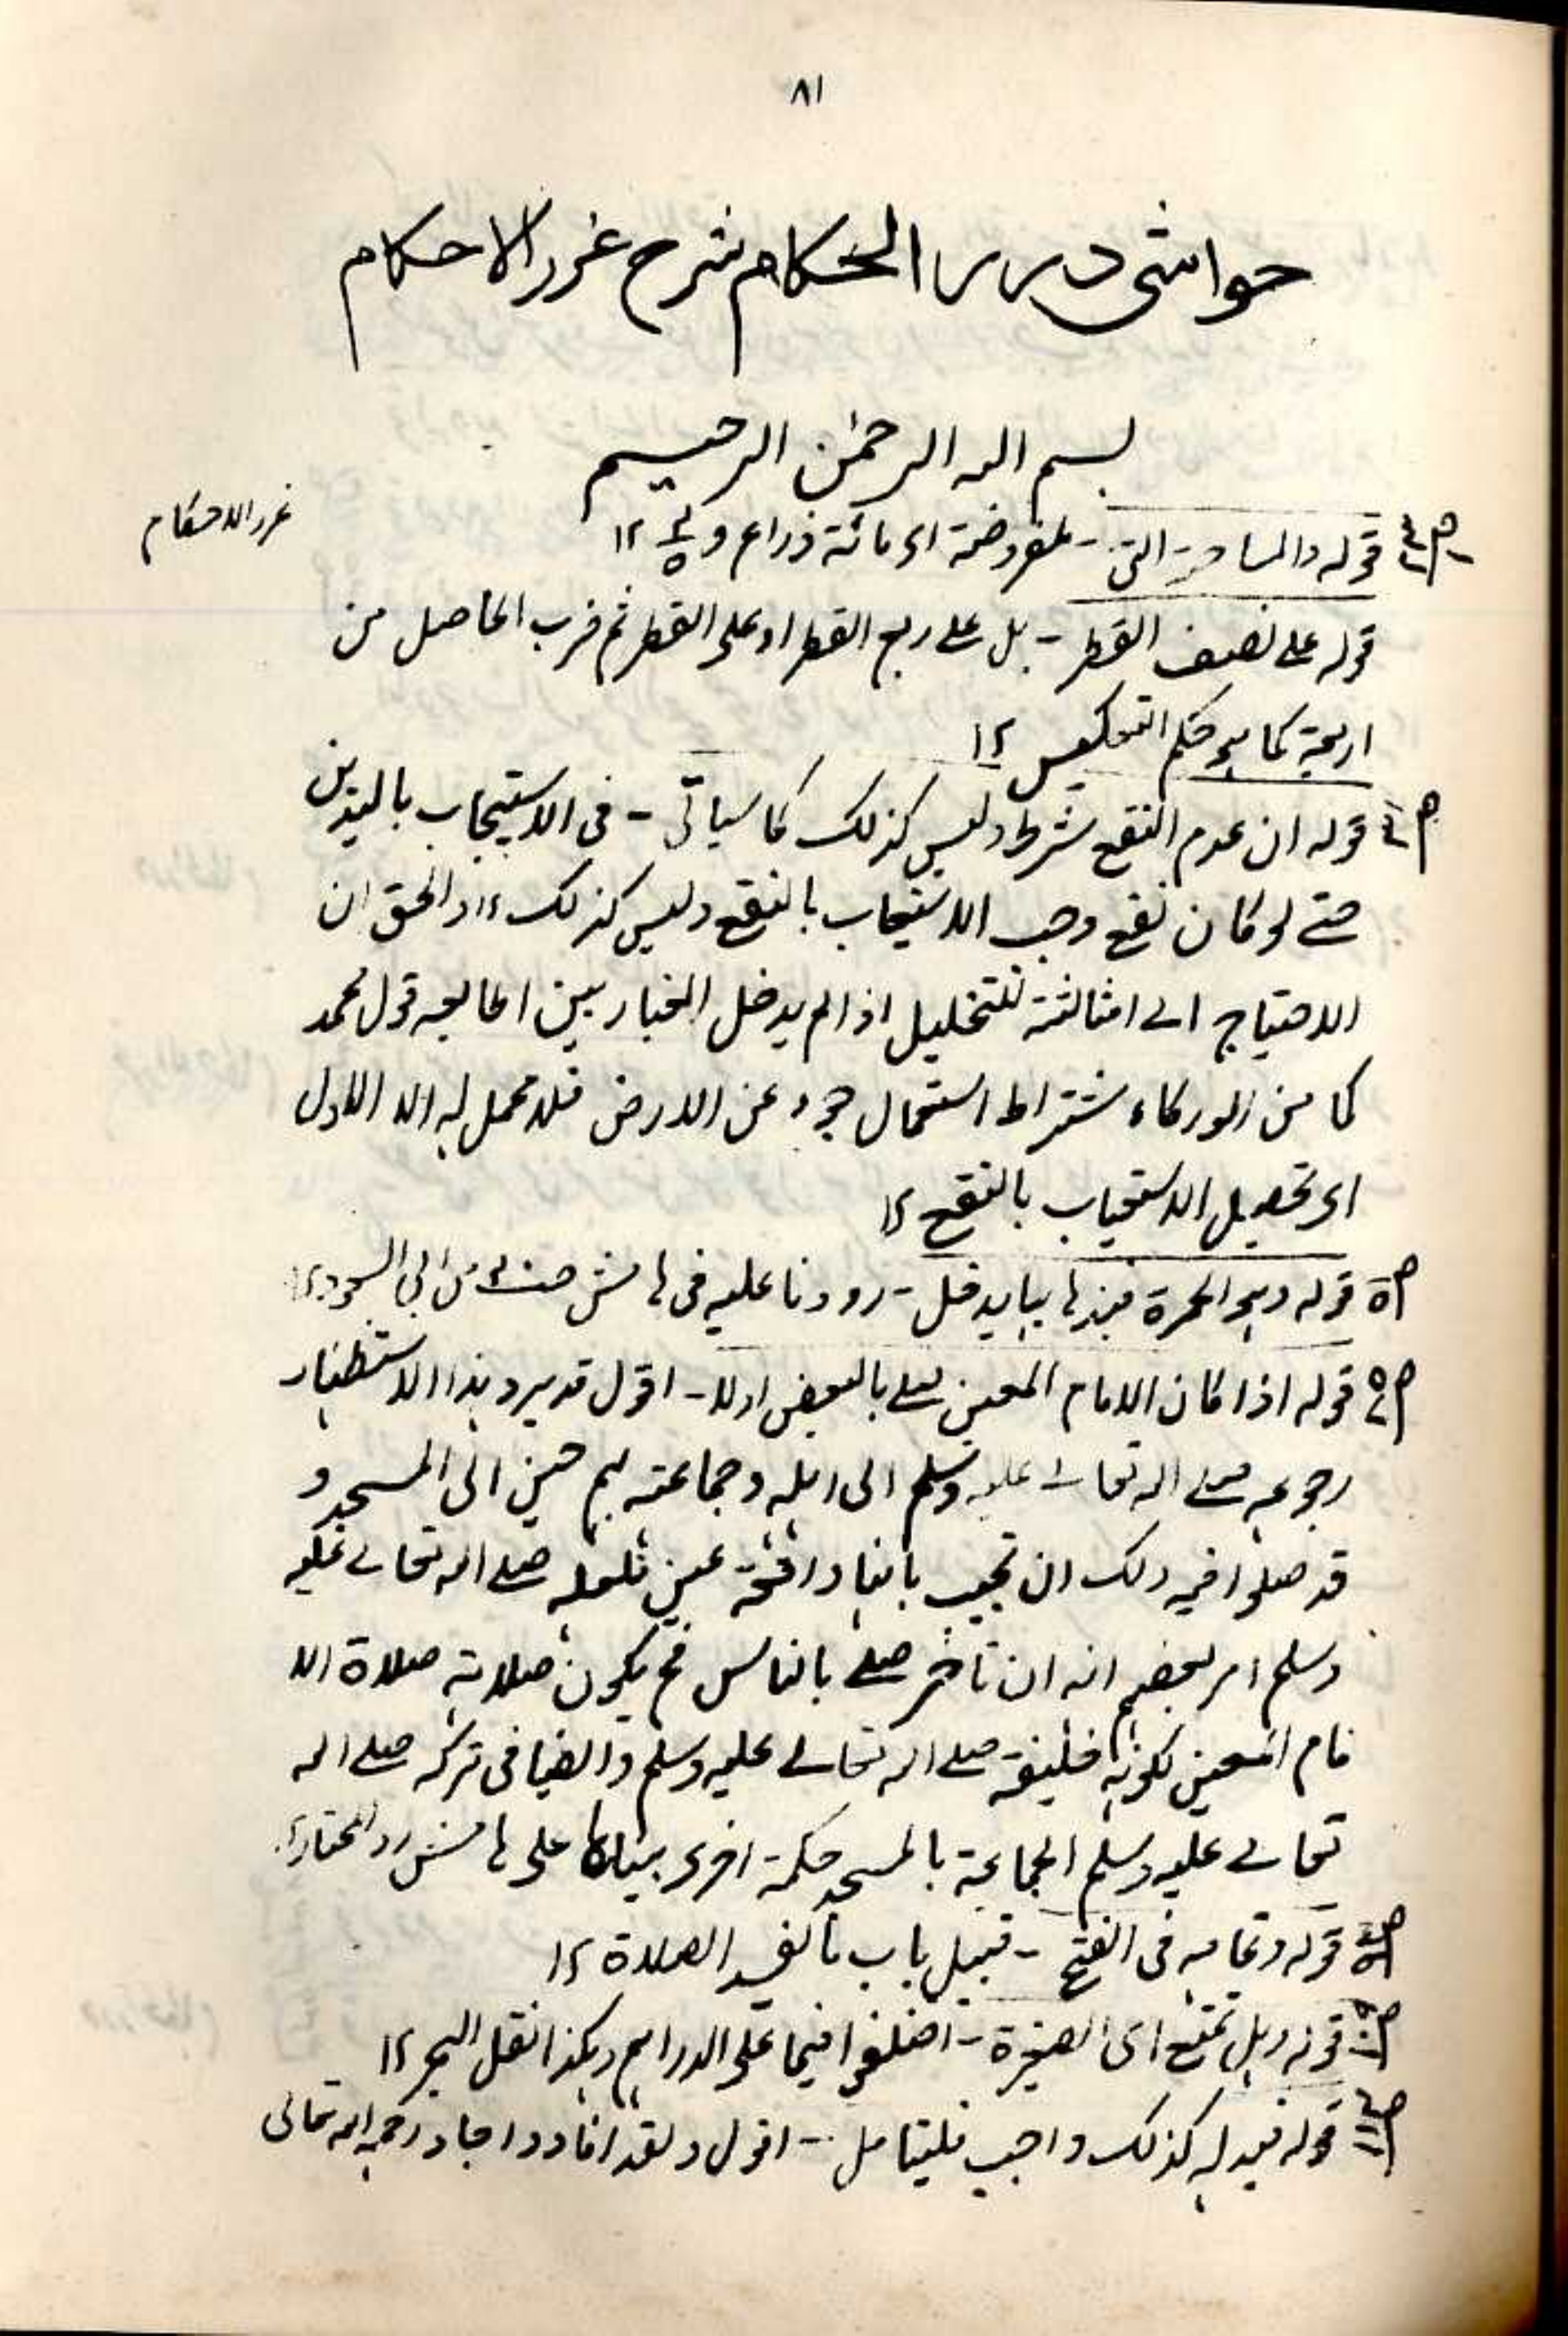 ٨١
حواشی درر الحکام شرح غرر الاحکام
بسم الله الرحمٰن الرحیم
غرر الاحکام
قوله والمساحة التی - المفروضة ای مائة ذراع و ۱۲
قوله علی نصف القطر - بل علی ربع القطر او علی القطر ثم ضرب الحاصل من
اربعة کما هو حکم التعکیس ۱۲
قوله ان عدم النقع شرط ولیس کذلک کما سیاتی - فی الاستیعاب بالیدین
حتے لو کان نقع وجب الاستیعاب بالنقع ولیس کذلک ۱۲ والحق ان
الاحتیاج الی الثالثة للتخلیل اذا لم یدخل الغبار بین اصابعه قول محمد
کما من اشتراط استعمال جزء من الارض فلا محمل له الا الاول
ای تحصیل الاستیعاب بالنقع ۱۲
ص٥ قوله وهو الحمرة فبذهابها یدخل - رددنا علیه فی هامش من ابی السعود ۱۲
قوله اذا کان الامام المعین صلے بالبعض اولا - اقول قد یرد بهذا الاستظهار
رجوعه صلے الله تعالے علیه وسلم الی اهله وجماعته بهم حین اتی المسجد و
قد صلوا فیه ولک ان تجیب بانها واقعة عین فلعله صلے الله تعالے علیه
وسلم امر بعضهم انه ان تاخر صلے بالناس فح یکون صلاته صلاة الا
مام المعین لکونه خلیفة صلے الله تعالے علیه وسلم وایضا فی ترکه صلے الله
تعالے علیه وسلم الجماعة بالمسجد حکمة اخری بیناها علی هامش رد المحتار ۱۲
قوله وتمامه فی الفتح - قبیل باب ما یفسد الصلاة ۱۲
قوله وهل تمنع ای الصغیرة - اختلفوا فیما علی الدراهم وهکذا نقل البحر ۱۲
قوله فبدله کذلک واجب فلیتامل - اقول ولقد افاد واجاد رحمه الله تعالی